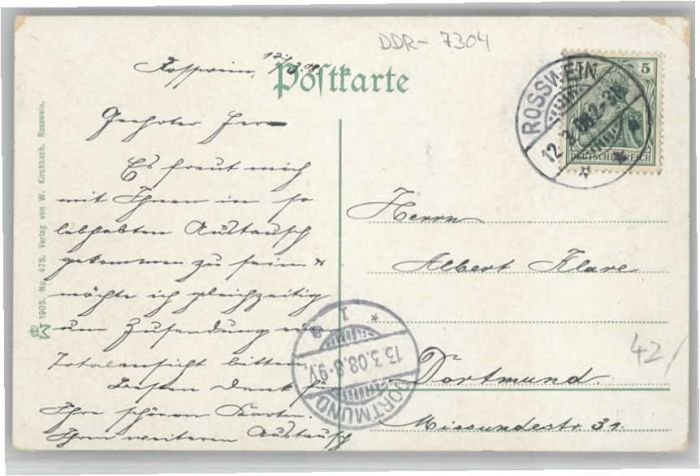 DDR- 7304
Rosswein, 12/3.08.
Postkarte
5
DEUTSCHES REICH
ROSSWEIN
12.3.08.2-3N.
Geehrter Herr
Es freut mich
mit Ihnen in so
lebhaften Austausch
gekommen zu sein u
möchte ich gleichzeitig
um Zusendung
Totalansicht bitten.
Besten Dank für
Ihre schönen Karten.
Ihrem weiteren Austausch
Herrn
Albert Klare
Dortmund.
Missundestr. 31.
42/
DORTMUND
13.3.08.8-9V.
1
1905. No. 475. Verlag von W. Kirchbach, Rosswein.